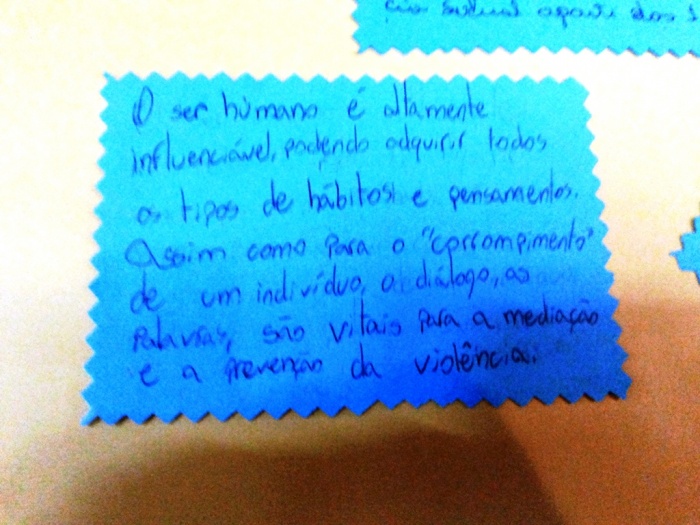 sexual aparti dos
O ser humano é altamente
influenciável, podendo adquirir todos
os tipos de hábitos e pensamentos.
Assim como para o "corrompimento"
de um indivíduo, o diálogo, as
palavras, são vitais para a mediação
e a prevenção da violência.